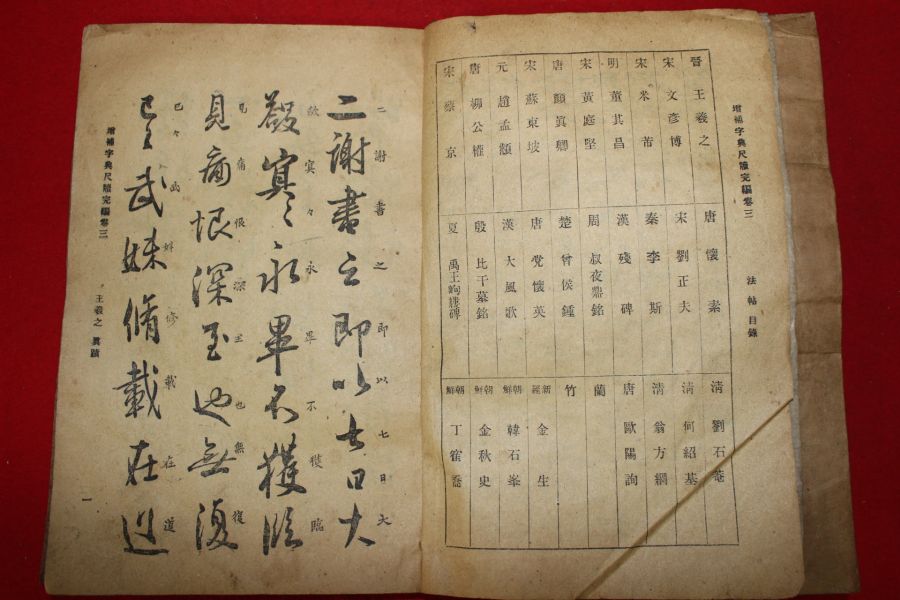 增補字典尺牘完編卷三 法帖目錄
晉王羲之
宋文彦博
宋米芾
明董其昌
宋黃庭堅
唐顏眞卿
宋蘇東坡
元趙孟頫
唐柳公權
宋蔡京
唐懷素
宋劉正夫
秦李斯
漢殘碑
周叔夜鼎銘
楚曾侯鍾
唐党懷英
漢大風歌
殷比干墓銘
夏禹王岣嶁碑
淸劉石菴
淸何紹基
淸翁方綱
唐歐陽詢
蘭
竹
新羅金生
朝鮮韓石峯
朝鮮金秋史
朝鮮丁喬
二謝書之即以七日大
二謝書之即以七日大
歛冥々永畢不獲臨
歛冥々永畢不獲臨
見痛恨深至也無復
見痛恨深至也無復
已々武妹脩載在道
已々武妹修載在道
增補字典尺牘完編卷三 王羲之 眞蹟 一